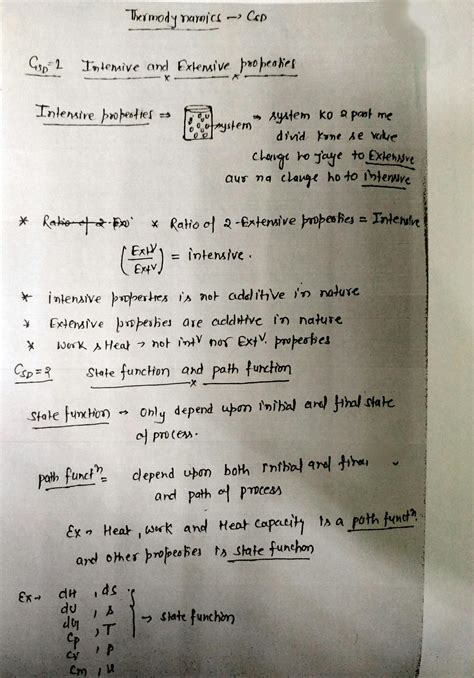 Thermodynamics → CSD
CSD=1 Intensive and Extensive properties
Intensive properties ⇒ system ⇒ system ko 2 part me
divid krne se value
change ho jaye to Extensive
aur na change ho to intensive
* Ratio of 2 Ext * Ratio of 2-Extensive properties = Intensive
(Extv/Extv) = intensive.
* intensive properties is not additive in nature
* Extensive properties are additive in nature
* work & Heat → not intv nor Extv. properties
CSD=2 State function and path function
State function → only depend upon initial and final state
of process.
path functn = depend upon both initial and final
and path of process
Ex → Heat, work and Heat capacity is a path functn.
and other properties is state function
Ex → dH , ds
dU , S
dG , T → state function
Cp , P
Cv
Cm ,